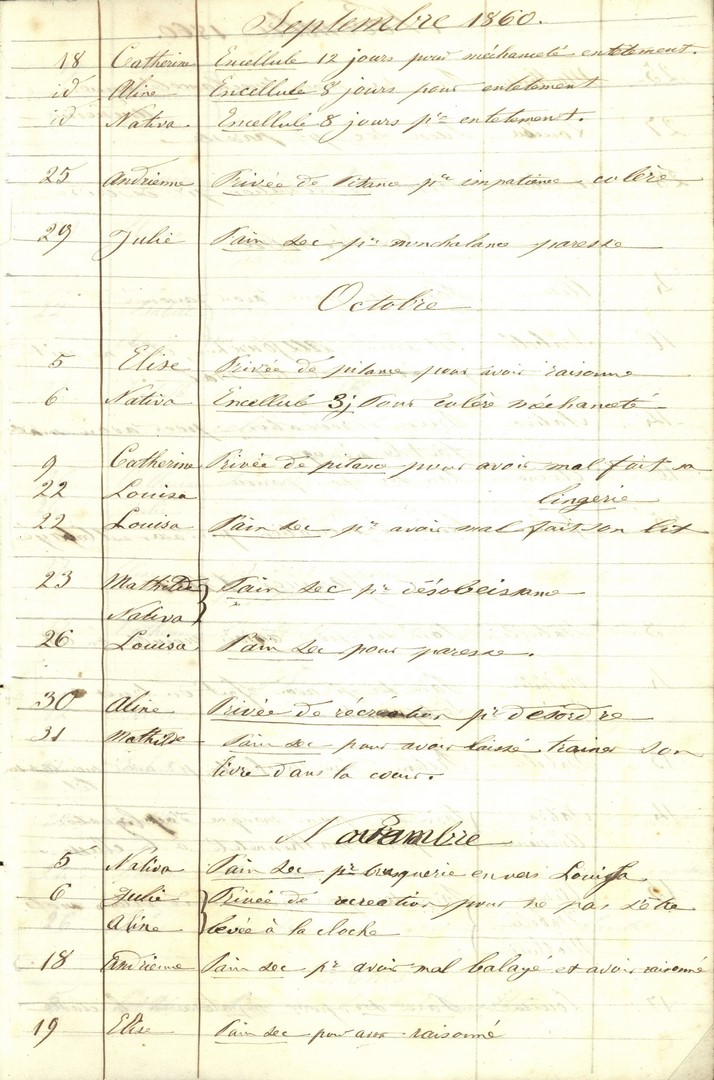 Septembre 1860.
18 Catherine Encellulé 12 jours pour méchanceté entetement.
id Aline Encellulé 8 jours pour entetement
id Nativa. Encellulé 8 jours pr entetement.
25 Andrienne Privée de Pitance pr impatience colère
29 Julie Pain sec pr nonchalance paresse
Octobre
5 Elise Privée de pitance pour avoir raisonné
6 Nativa Encellulé 3 j Pour colère méchanceté
9 Catherine Privée de pitance pour avoir mal fait sa
22 Louisa lingerie
22 Louisa Pain sec pr avoir mal fait son lit
23 Mathilde Pain sec pr désobeissance
Nativa "
26 Louisa Pain sec pour paresse.
30 Aline Privée de récréation pr desordre
31 Mathilde Pain sec pour avoir laissé trainer son
livre dans la cour.
Novembre
5 Nativa Pain sec pr brusquerie envers Louisa
6 Julie Privée de recreation pour ne pas s'être
Aline levée à la cloche
18 Andrienne Pain sec pr avoir mal balayé et avoir raisonné
19 Elise Pain sec pour avoir raisonné